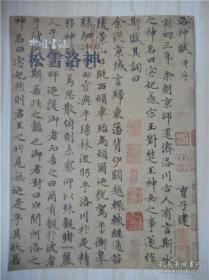 松雪洛神
洛神賦 并序
曹子建
黃初三年余朝京師還濟洛川古人有言斯水之
神名曰宓妃感宋玉對楚王神女之事遂作
斯賦其詞曰
余從京域言歸東藩背伊闕越轘轅經通谷
陵景山日既西傾車殆馬煩爾迺稅駕乎蘅皋
秣駟乎芝田容與乎陽林流眄乎洛川於是精
移神駭忽焉思散俯則未察仰以殊觀睹一麗
人于巖之畔迺援御者而告之曰爾有覿於彼者
乎彼何人斯若此之豔也御者對曰臣聞河洛之
神名曰宓妃然則君王之所見無迺是乎其狀若